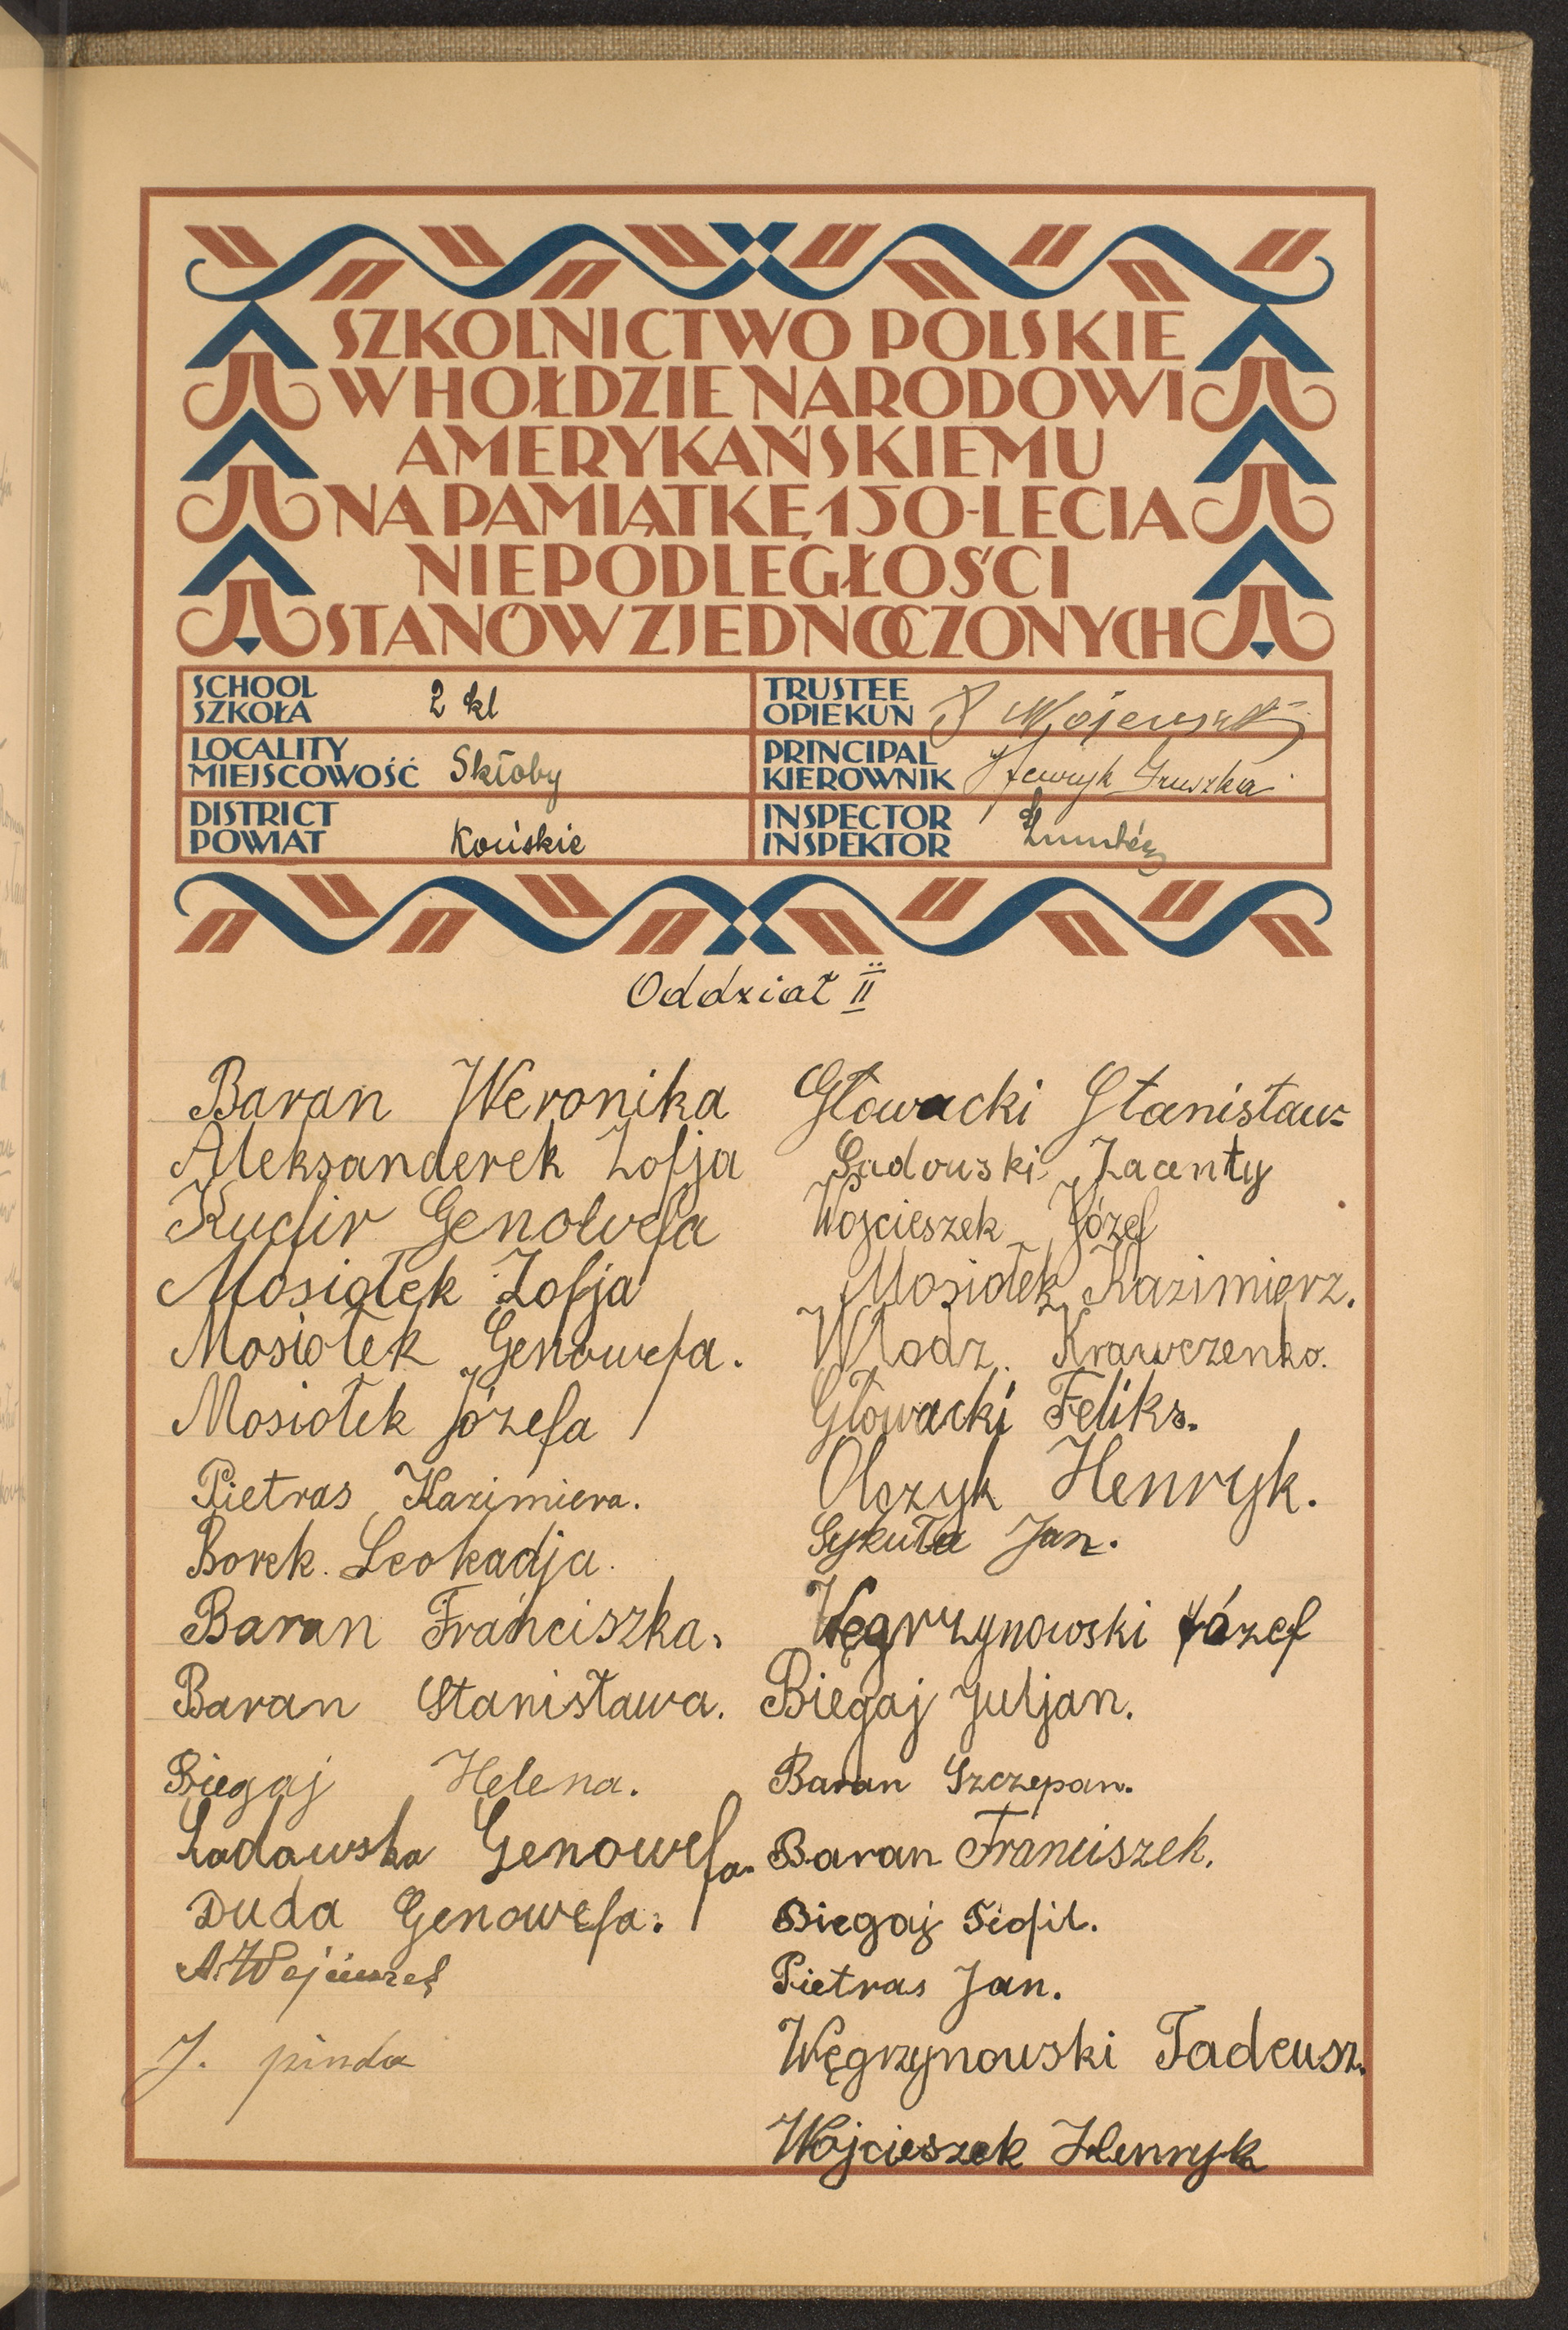 SZKOLNICTWO POLSKIE
W HOŁDZIE NARODOWI
AMERYKAŃSKIEMU
NA PAMIĄTKĘ 150-LECIA
NIEPODLEGŁOŚCI
STANÓW ZJEDNOCZONYCH
SCHOOL
SZKOŁA
2 kl
LOCALITY
MIEJSCOWOŚĆ
Skłoby
DISTRICT
POWIAT
Końskie
TRUSTEE
OPIEKUN
PRINCIPAL
KIEROWNIK
Henryk Gruszka
INSPECTOR
INSPEKTOR
Oddział II
Baran Weronika
Aleksanderek Zofja
Genowefa
Mosiołek Zofja
Mosiołek Genowefa.
Mosiołek Józefa
Pietras Kazimiera.
Borek. Leokadja.
Baran Franciszka.
Baran Stanisława.
Biegaj Helena.
Genowefa.
Duda Genowefa.
J. pinda
Głowacki Stanisław
Sadowski
Wojcieszek Józef
Mosiołek Kazimierz.
Włodz. Krawczenko.
Głowacki Feliks.
Olczyk Henryk.
Sykuła Jan.
Węgrzynowski Józef
Biegaj Juljan.
Baran Szczepan.
Baran Franciszek.
Biegaj Tiofil.
Pietras Jan.
Węgrzynowski Tadeusz.
Wojcieszek Henryk